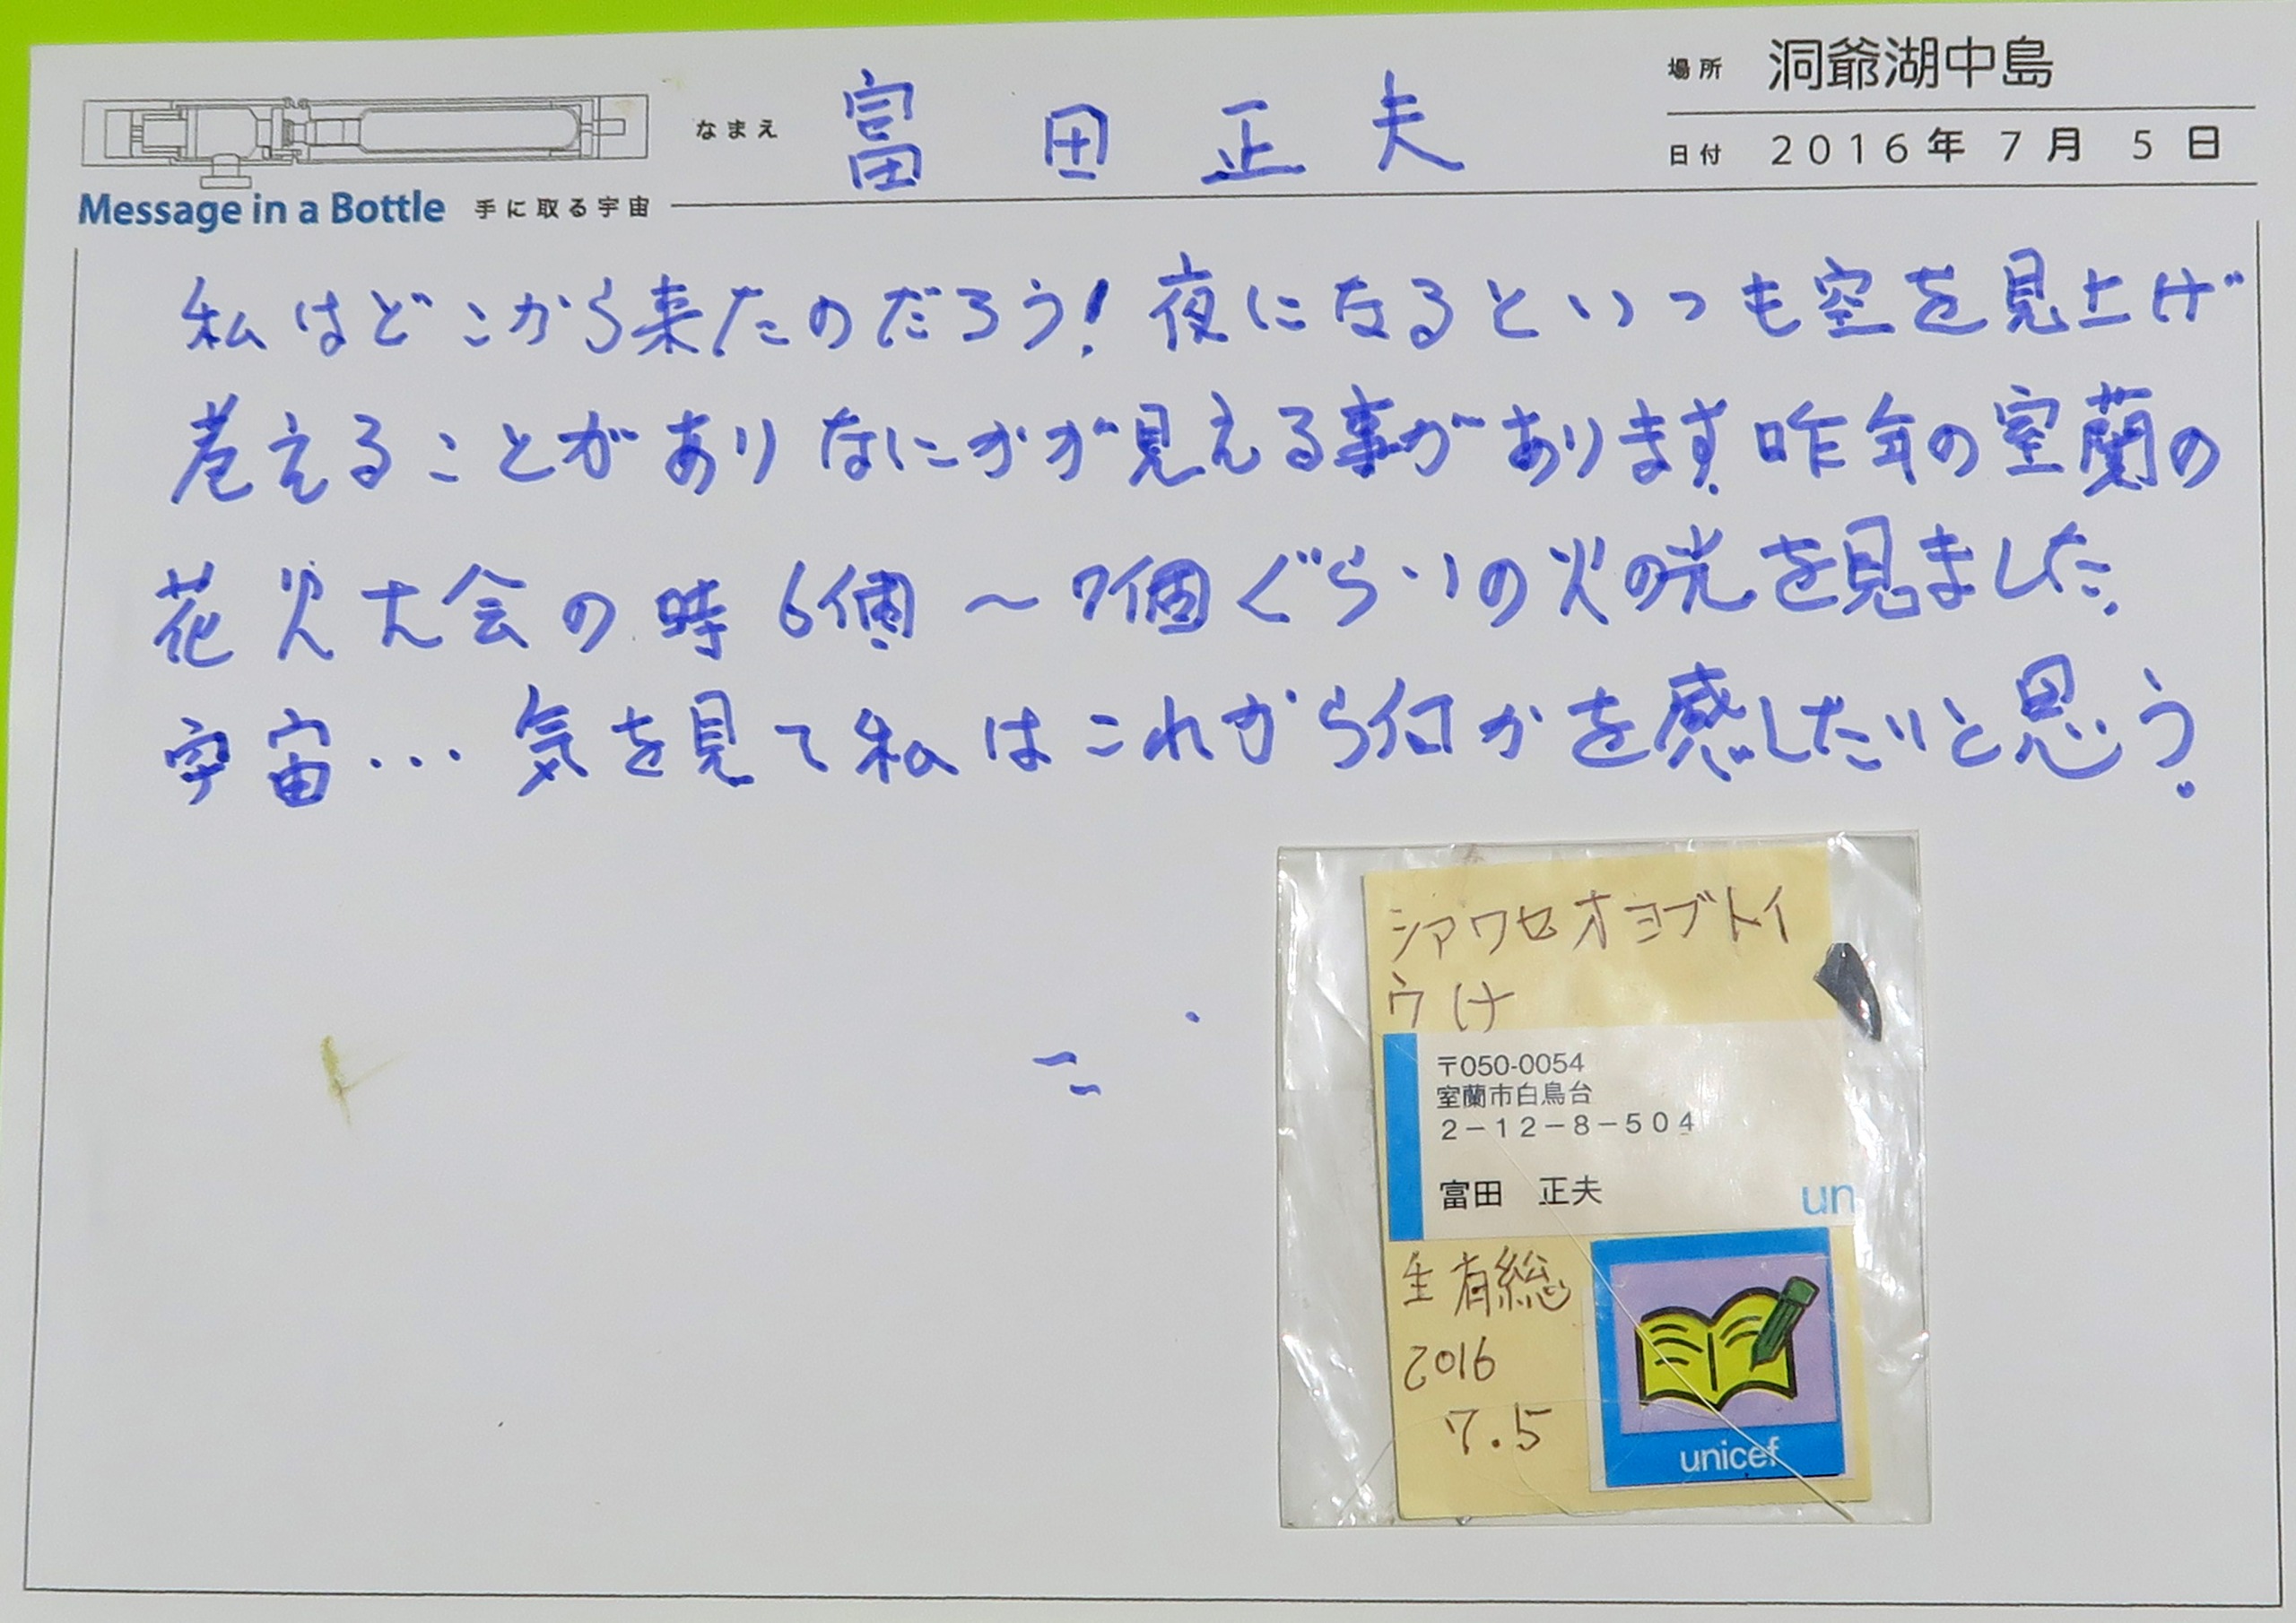 場所 洞爺湖中島
なまえ 富田正夫
日付 2016年7月5日
Message in a Bottle 手に取る宇宙
私はどこから来たのだろう!夜になるといつも空を見上げ
考えることがありなにかが見える事があります.昨年の室蘭の
花火大会の時6個～7個ぐらいの火の光を見ました.
宇宙… 気を見て私はこれから何かを感したいと思う.
シアワセオヨブトイ
ウ け
〒050-0054
室蘭市白鳥台
2－12－8－504
富田 正夫
un
生有総
2016
7.5
unicef